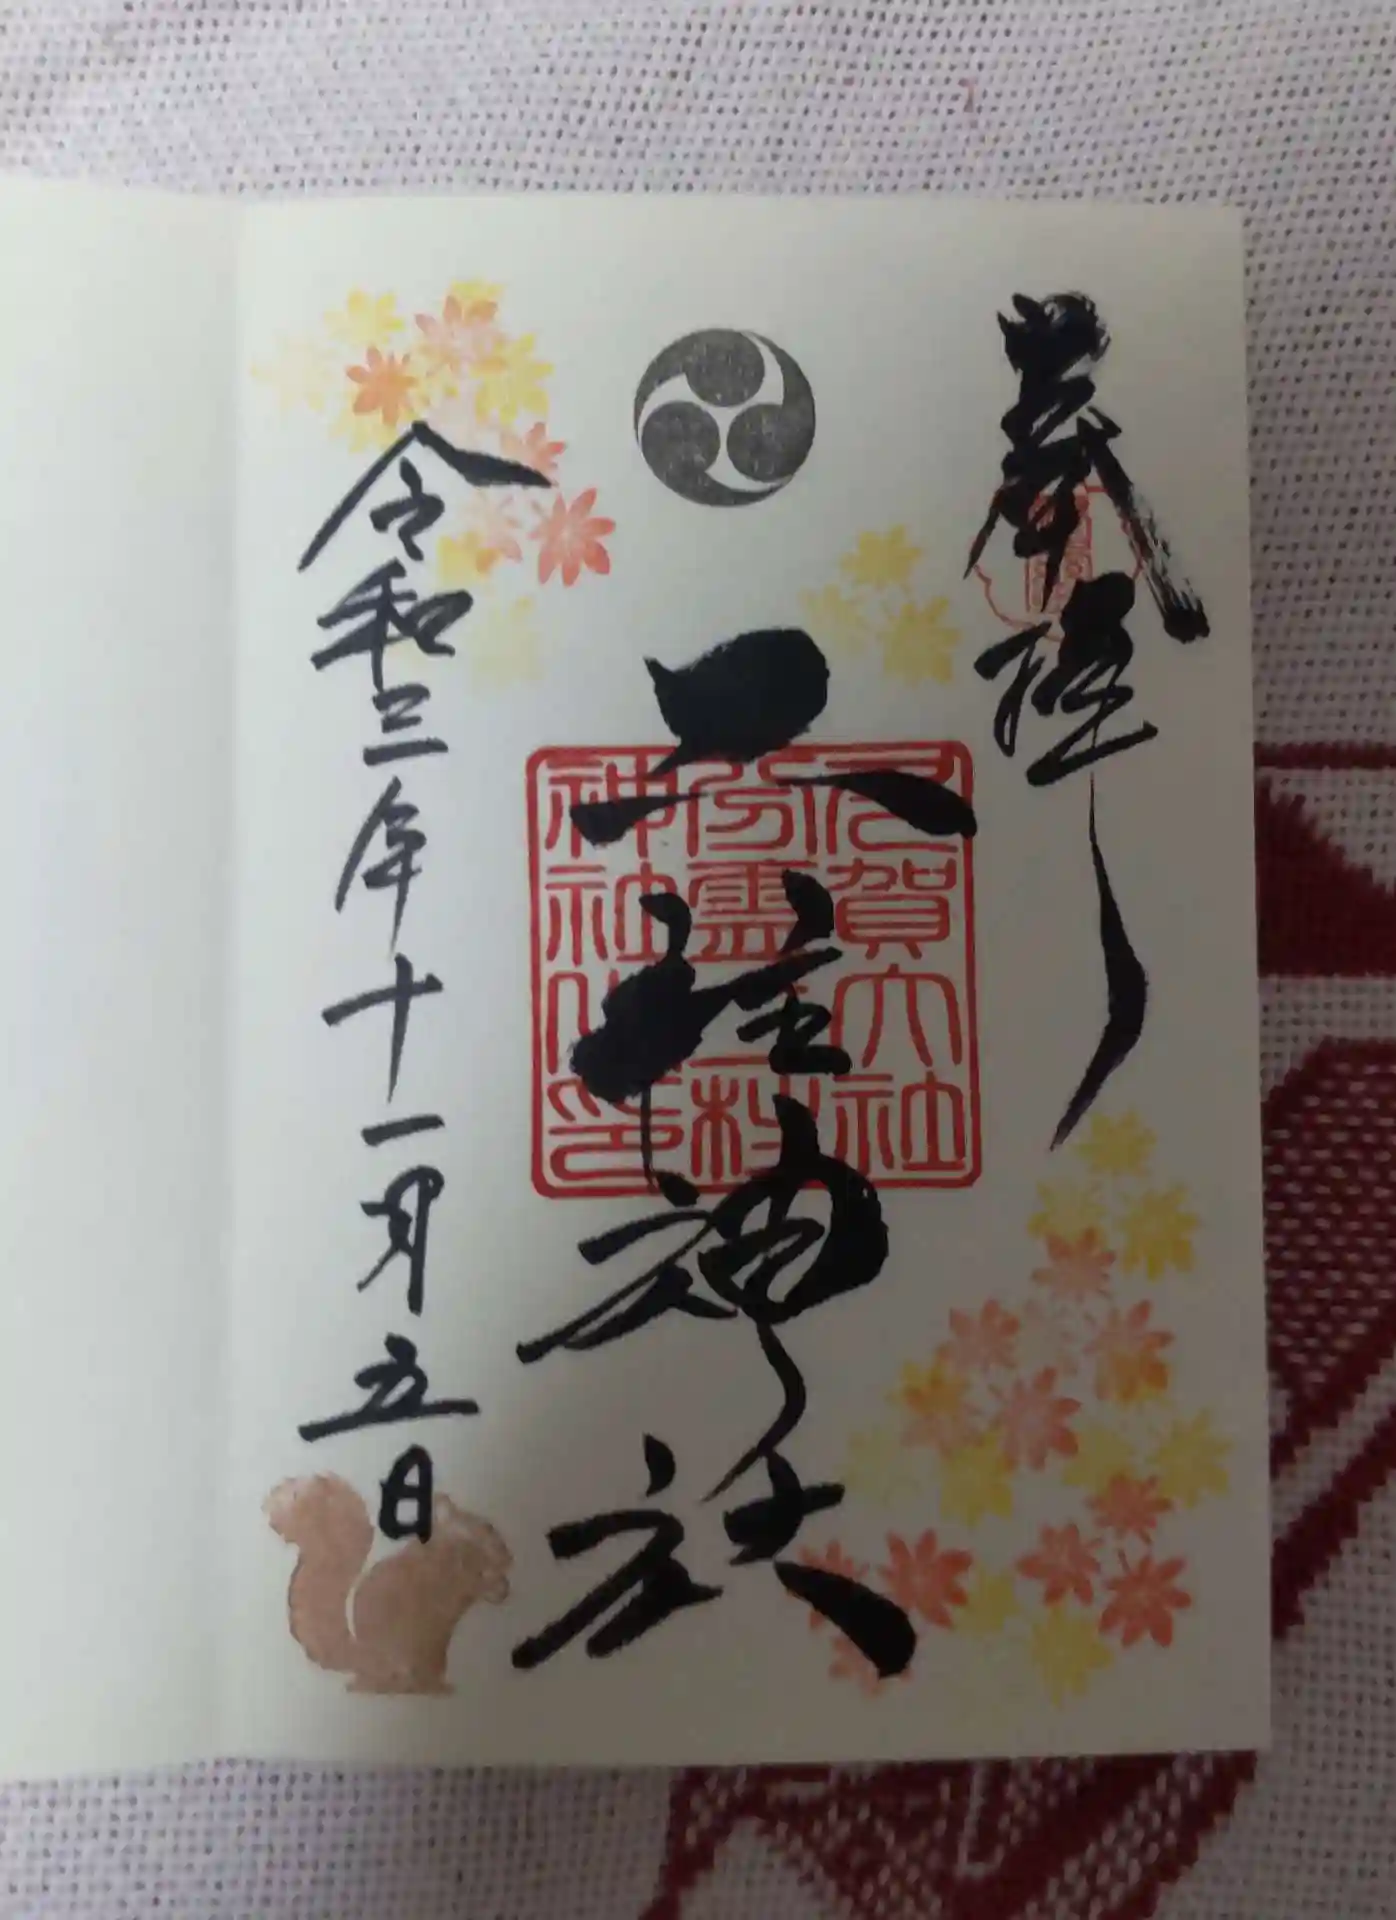 奉拝
二柱神社
多賀大社
分霊二柱
神社之印
令和三年十一月五日